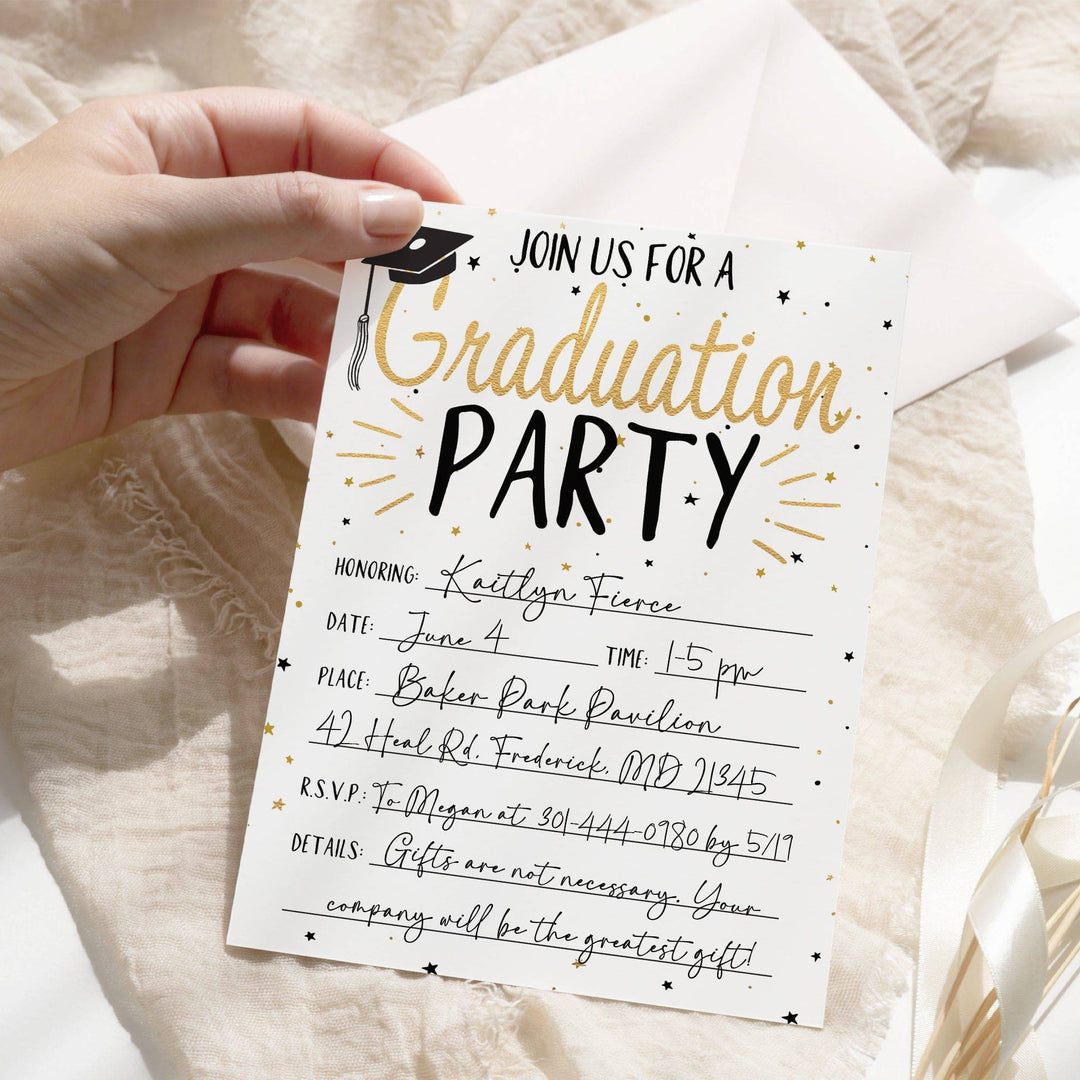 JOIN US FOR A
Graduation
PARTY
HONORING: Kaitlyn Fierce
DATE: June 4 TIME: 1-5 pm
PLACE: Baker Park Pavilion
42 Heal Rd. Frederick, MD 21345
R.S.V.P.: To Megan at 301-444-0980 by 5/19
DETAILS: Gifts are not necessary. Your
company will be the greatest gift!